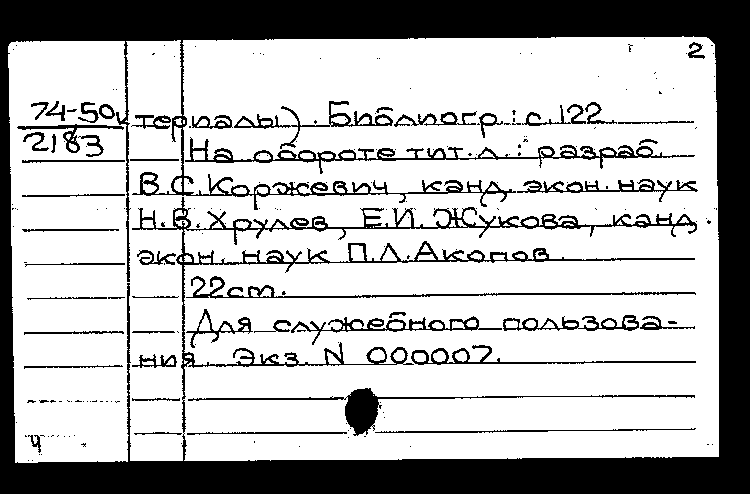 2
74-50к териалы). Библиогр: с. 122
2183
На обороте тит. л.: разраб.
В.С. Коржевич, канд. экон. наук
Н.В. Хрулев, Е.И. Жукова, канд.
экон. наук П.Л. Акопов.
22 cm.
Для служебного пользова-
ния. Экз. N 000007.
ч